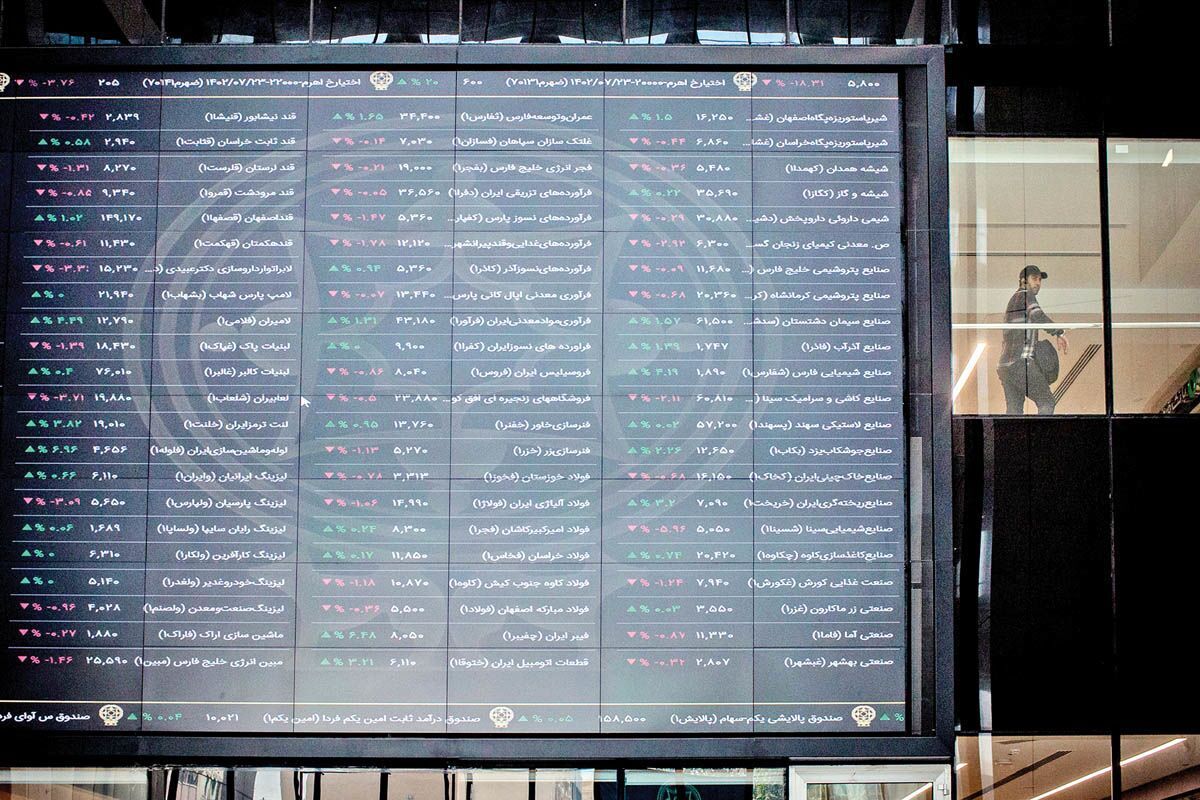 ۵,۸۰۰ ▼ % -۱۸.۳۱ اختیارخ اهرم-۲۰۰۰۰-۱۴۰۲/۰۷/۲۳ (ضهرم۷۰۱۳۱) ۶۰۰ ▲ % ۲۰ اختیارخ اهرم-۲۲۰۰۰-۱۴۰۲/۰۷/۲۳ (ضهرم۷۰۱۴۱) ۲۰۵ ▼ % -۳.۷۶
شیرپاستوریزه‌پگاه‌اصفهان (غش... ۱۶,۲۵۰ ▲ % ۱.۵ عمران‌وتوسعه‌فارس (ثفارس۱) ۳۴,۴۰۰ ▲ % ۱.۶۵ قند نیشابور (قنیشا۱) ۲,۸۳۹ ▼ % -۰.۴۲
شیرپاستوریزه‌پگاه‌خراسان (غشا... ۶,۸۶۰ ▼ % -۰.۴۴ غلتک سازان سپاهان (فسازان۱) ۷,۰۳۰ ▼ % -۰.۱۴ قند ثابت خراسان (قثابت۱) ۲,۹۴۰ ▲ % ۰.۵۸
شیشه همدان (کهمدا۱) ۵,۴۸۰ ▼ % -۰.۳۶ فجر انرژی خلیج فارس (بفجر۱) ۱۹,۰۰۰ ▼ % -۰.۲۱ قند لرستان (قلرست۱) ۸,۲۷۰ ▼ % -۱.۳۱
شیشه و گاز (کگاز۱) ۳۵,۶۹۰ ▲ % ۰.۲۲ فرآورده‌های تزریقی ایران (دفرا۱) ۳۶,۵۶۰ ▼ % -۰.۰۵ قند مرودشت (قمرو۱) ۹,۳۴۰ ▼ % -۰.۸۵
شیمی داروئی داروپخش (دشی... ۳۰,۸۸۰ ▼ % -۰.۲۹ فرآورده‌های نسوز پارس (کفپار... ۵,۳۶۰ ▼ % -۱.۴۷ قنداصفهان (قصفها۱) ۱۴۹,۱۷۰ ▲ % ۱.۰۲
ص. معدنی کیمیای زنجان گس... ۶,۳۰۰ ▼ % -۲.۹۲ فرآورده‌های‌غذایی‌وقندپیرانشهر... ۱۲,۱۲۰ ▼ % -۱.۷۸ قندهکمتان (قهکمت۱) ۱۱,۴۳۰ ▼ % -۰.۶۱
صنایع پتروشیمی خلیج فارس (... ۱۱,۶۸۰ ▼ % -۰.۰۹ فرآورده‌های‌نسوزآذر (کاذر۱) ۵,۳۶۰ ▲ % ۰.۹۴ لابراتوارداروسازی دکترعبیدی (د... ۱۵,۲۳۰ ▼ %
صنایع پتروشیمی کرمانشاه (کر... ۲۰,۳۶۰ ▼ % -۰.۶۸ فرآوری معدنی اپال کانی پارس... ۱۳,۴۴۰ ▼ % -۰.۰۷ لامپ پارس شهاب (بشهاب۱) ۲۱,۹۴۰ ▲ % ۰
صنایع سیمان دشتستان (سدش... ۶۱,۵۰۰ ▲ % ۱.۵۷ فرآوری‌موادمعدنی‌ایران (فرآور۱) ۴۳,۱۸۰ ▲ % ۱.۳۱ لامیران (فلامی۱) ۱۲,۷۹۰ ▲ % ۴.۴۹
صنایع آذرآب (فاذر۱) ۱,۷۴۷ ▲ % ۱.۳۹ فراورده های نسوزایران (کفرا۱) ۹,۹۰۰ ▲ % ۰ لبنیات پاک (غپاک۱) ۱۸,۴۳۰ ▼ % -۱.۳۹
صنایع شیمیایی فارس (شفارس۱) ۱,۸۹۰ ▲ % ۴.۱۹ فروسیلیس ایران (فروس۱) ۸,۰۴۰ ▼ % -۰.۸۶ لبنیات کالبر (غالبر۱) ۷۶,۰۱۰ ▲ % ۰.۴
صنایع کاشی و سرامیک سینا (... ۶۰,۸۱۰ ▼ % -۲.۱۱ فروشگاههای زنجیره ای افق کو... ۲۳,۸۸۰ ▼ % -۰.۵ لعابیران (شلعاب۱) ۱۹,۸۸۰ ▼ % -۳.۷۱
صنایع لاستیکی سهند (پسهند۱) ۵۷,۲۰۰ ▲ % ۰.۰۲ فنرسازی‌خاور (خفنر۱) ۱۳,۷۶۰ ▲ % ۰.۹۵ لنت ترمزایران (خلنت۱) ۱۹,۰۱۰ ▲ % ۳.۸۲
صنایع‌جوشکاب‌یزد (بکاب۱) ۱۲,۶۵۰ ▲ % ۲.۲۶ فنرسازی‌زر (خزر۱) ۵,۲۷۰ ▼ % -۱.۱۳ لوله‌وماشین‌سازی‌ایران (فلوله۱) ۴,۶۵۶ ▲ % ۶.۹۶
صنایع‌خاک‌چینی‌ایران (کخاک۱) ۱۶,۱۵۰ ▼ % -۰.۶۸ فولاد خوزستان (فخوز۱) ۳,۳۱۳ ▼ % -۰.۷۸ لیزینگ ایرانیان (وایران۱) ۶,۱۱۰ ▲ % ۰.۶۶
صنایع‌ریخته‌گری‌ایران (خریخت۱) ۷,۰۹۰ ▲ % ۳.۲ فولاد آلیاژی ایران (فولاژ۱) ۱۴,۹۹۰ ▼ % -۱.۰۶ لیزینگ پارسیان (ولپارس۱) ۵,۶۵۰ ▼ % -۳.۰۹
صنایع‌شیمیایی‌سینا (شسینا۱) ۵,۰۵۰ ▼ % -۵.۹۶ فولاد امیرکبیرکاشان (فجر۱) ۸,۳۰۰ ▲ % ۰.۲۴ لیزینگ رایان سایپا (ولساپا۱) ۱,۶۸۹ ▲ % ۰.۰۶
صنایع‌کاغذسازی‌کاوه (چکاوه۱) ۲۰,۴۲۰ ▲ % ۰.۷۴ فولاد خراسان (فخاس۱) ۱۱,۸۵۰ ▲ % ۰.۱۷ لیزینگ کارآفرین (ولکار۱) ۶,۳۱۰ ▲ % ۰
صنعت غذایی کورش (غکورش۱) ۷,۹۴۰ ▼ % -۱.۲۴ فولاد کاوه جنوب کیش (کاوه۱) ۱۰,۸۷۰ ▼ % -۱.۱۸ لیزینگ‌خودروغدیر (ولغدر۱) ۵,۱۴۰ ▲ % ۰
صنعتی زر ماکارون (غزر۱) ۳,۵۵۰ ▲ % ۰.۰۳ فولاد مبارکه اصفهان (فولاد۱) ۵,۵۰۰ ▼ % -۰.۳۶ لیزینگ‌صنعت‌ومعدن (ولصنم۱) ۴,۰۲۸ ▼ % -۰.۹۶
صنعتی آما (فاما۱) ۱۱,۳۳۰ ▼ % -۰.۸۷ فیبر ایران (چفیبر۱) ۸,۰۵۰ ▲ % ۶.۴۸ ماشین سازی اراک (فاراک۱) ۱,۸۸۰ ▼ % -۰.۲۷
صنعتی بهشهر (غبشهر۱) ۲,۸۰۷ ▼ % -۰.۳۲ قطعات اتومبیل ایران (ختوقا۱) ۶,۱۱۰ ▲ % ۳.۲۱ مبین انرژی خلیج فارس (مبین۱) ۲۵,۵۹۰ ▼ % -۱.۴۶
▲ % صندوق پالایشی یکم-سهام (پالایش۱) ۱۵۸,۵۰۰ ▲ % ۰.۰۵ صندوق درآمد ثابت امین یکم فردا (امین یکم۱) ۱۰,۰۲۱ ▲ % ۰.۰۴ صندوق س آوای فرد